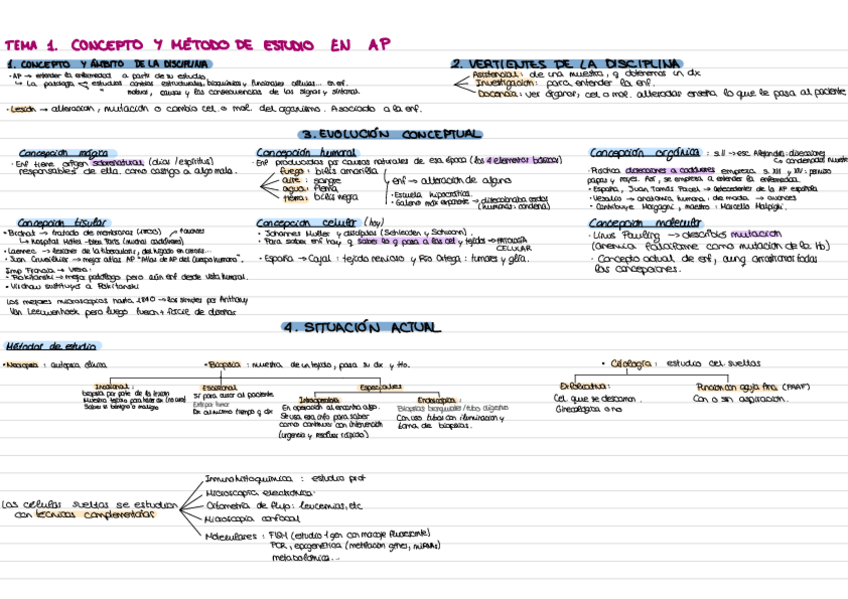 TEMA 1. CONCEPTO Y MÉTODO DE ESTUDIO EN AP
1. CONCEPTO Y ÁMBITO DE LA DISCIPLINA
· AP → entender la enfermedad a partir de su estudio.
↳ La patología estudios cambios estructurales, bioquímicos y funcionales células... en enf.
causas y las consecuencias de los signos y síntomas.
· Lesión → alteración, mutación o cambio cel. o mol. del organismo. Asociado a la enf.
2. VERTIENTES DE LA DISCIPLINA
Asistencial: de una muestra, q obtenemos un dx
Investigación: para entender la enf.
Docencia: ver órganos, cel o mol. alteradas enseña lo que le pasa al paciente
3. EVOLUCIÓN CONCEPTUAL
Concepción mágica
· Enf tiene origen sobrenatural (dios/espíritus)
responsables de ella. como castigo a algo malo.
Concepción humoral
· Enf producidas por causas naturales de esa época (los 4 elementos básicos)
fuego: bilis amarilla
aire: sangre
agua: flema
tierra: bilis negra
enf → alteración de alguno
· Escuela hipocrática.
· Galeno más importante → diseccionaba cerdos
(humanos: condena)
Concepción orgánica: s.II → esc. Alejandría: disecciones
↳ condenados muerte
disecciones a cadáveres empieza s. XIII y XIV: permiso
papas y reyes. Así, se empieza a entender la enfermedad.
· España, Juan Tomás Porcel → antecedente de la AP española
· Vesalio → anatomía humana, de moda → avances
· Contribuye Morgagni, maestro: Marcello Malpighi.
Concepción tisular
· Bichat → tratado de membranas
↳ hospital
· Laennec → describe de la tuberculosis,
· Jean Cruveilhier → mejor atlas AP "Atlas de AP del cuerpo humano".
Imp Francia → Viena:
· Rokitanski → mejor patólogo pero aún enf desde vista humoral.
· Virchow sustituyó a Rokitanski
Los mejores microscopios hasta 1840 → los simples por Anthony
Van Leeuwenhoek pero luego fueron + fáciles de diseñar
Concepción celular (hoy)
· Johannes Muller y discípulos (Schleiden y Schwann).
· Para saber enf hay q saber lo q pasa a las cel y tejidos → PATOLOGÍA
CELULAR
· España → Cajal: tejido nervioso y Río Ortega: tumores y glía.
Concepción molecular
· Linus Pauling → describió mutación
(anemia falciforme como mutación de la Hb)
· Concepto actual de enf, aunq arrastramos todas
las concepciones.
4. SITUACIÓN ACTUAL
Métodos de estudio
· Necropsia: autopsia clínica
· Biopsia: muestra de un tejido, para su dx y tto.
· Citología: estudio cel. sueltas
Incisional:
biopsia por parte de la lesión
Saber si benigno o maligno
Escisional
Sí para curar al paciente
Extirpa tumor
En al mismo tiempo q dx
Especiales
Intraoperatoria
En operación al encontrar algo.
Se usa esa info para saber
como continuar con intervención
(urgencia y resolver rápido)
Endoscópica:
Biopsias bronquiales/tubo digestivo
Con uso tubos con iluminación y
toma de biopsias.
Exfoliativa:
Cel que se descaman.
Ginecológica o no
Punción con aguja fina (PAAF)
Con o sin aspiración.
Las células sueltas se estudian
con técnicas complementarias
Inmunohistoquímica: estudia prot
Microscopía electrónica.
Citometría de flujo: leucemias, etc
Microscopía confocal
Moleculares: FISH (estudio 1 gen con marcaje fluorescente)
PCR, epigenética (metilación genes, miRNAs)
metabolómica...